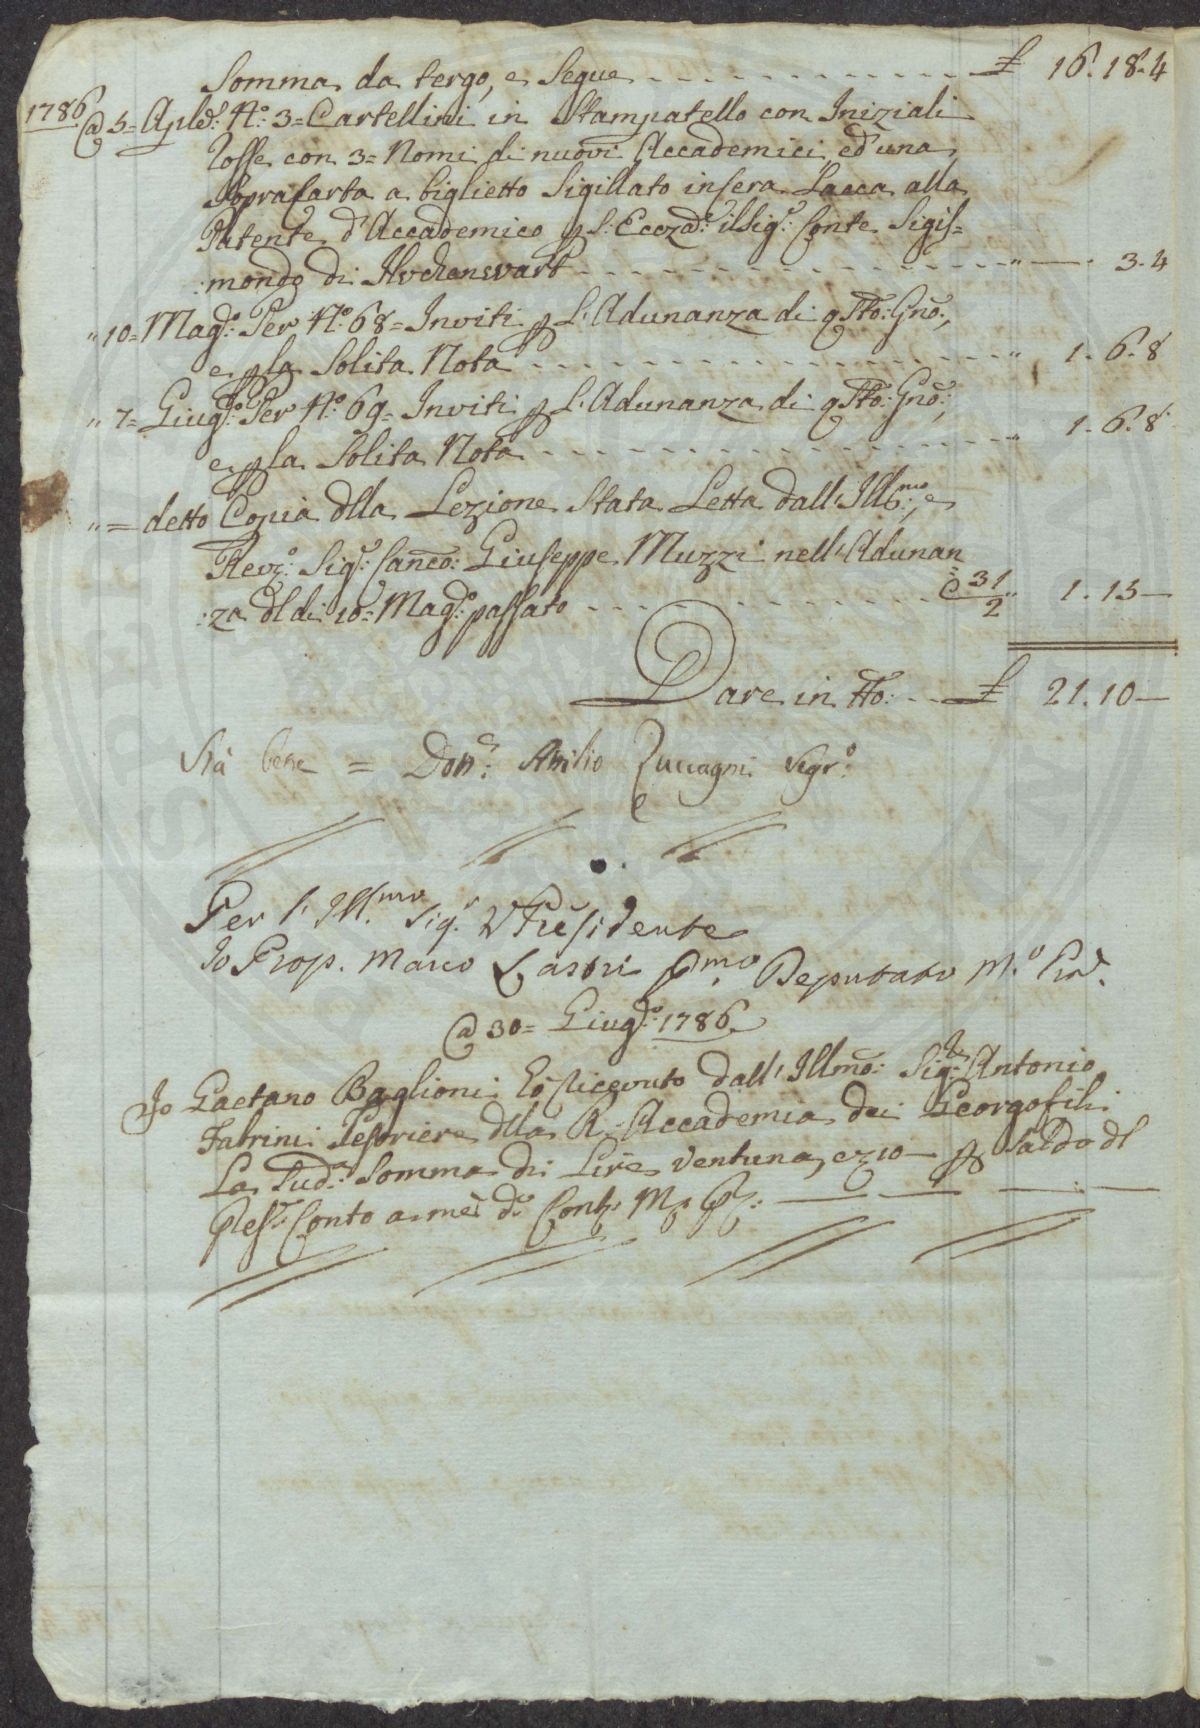 Somma da tergo, e Segue - - - - - - - £ 16. 18. 4
1786
@ 5= Aple: N.o 3= Cartellini in Stampatello con Iniziali
Rosse con 3= Nomi di nuovi Accademici, ed' una
Sopracarta a biglietto Sigillato in Cera Lacca alla
Patente d'Accademico p S. Ecc.za il Sig.r Conte Sigis=
:mondo di - - - - - - - " —— . 3. 4
" 10= Mag.o: Per N.o 68= Inviti p L'Adunanza di q.sto: Gno:,
e p la Solita Nota - - - - - - - " 1. 6. 8
" 7= Giug.o: Per N.o 69= Inviti p L'Adunanza di q.sto: Gno:,
e p la Solita Nota - - - - - - - " 1. 6. 8
" = detto Copia dlla Lezione Stata Letta dall'Ill.mo:, e
Rev.: Sig.r: Canco: Giuseppe Muzzi nell'Adunan
:za dl di 10= Mag.o: passato - - - - - - C 31/2 " 1. 15 —
Dare in tto: - - £ 21. 10 —
Stà bene = Dott.: Attilio Zuccagni Segr.o:
Per l'Ill.mo Sig.r VPresidente
Io Prop. Marco Lastri P.mo Deputato M.o
@ 30= Giug.o: 1786
Io Gaetano Baglioni hò ricevuto dall'Illmo: Sig.r: Antonio
Fabrini Tesoriere dlla R. Accademia dei Georgofili
La sud.a: Somma di Lire Ventuna, e 10 — p Saldo dl
Pres.: Conto a me d.o Cont. M. P.: — — — —